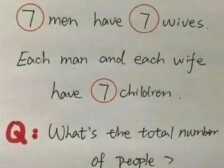 7 men have 7 wives.
Each man and each wife
have 7 children.
Q: What's the total number
of people?